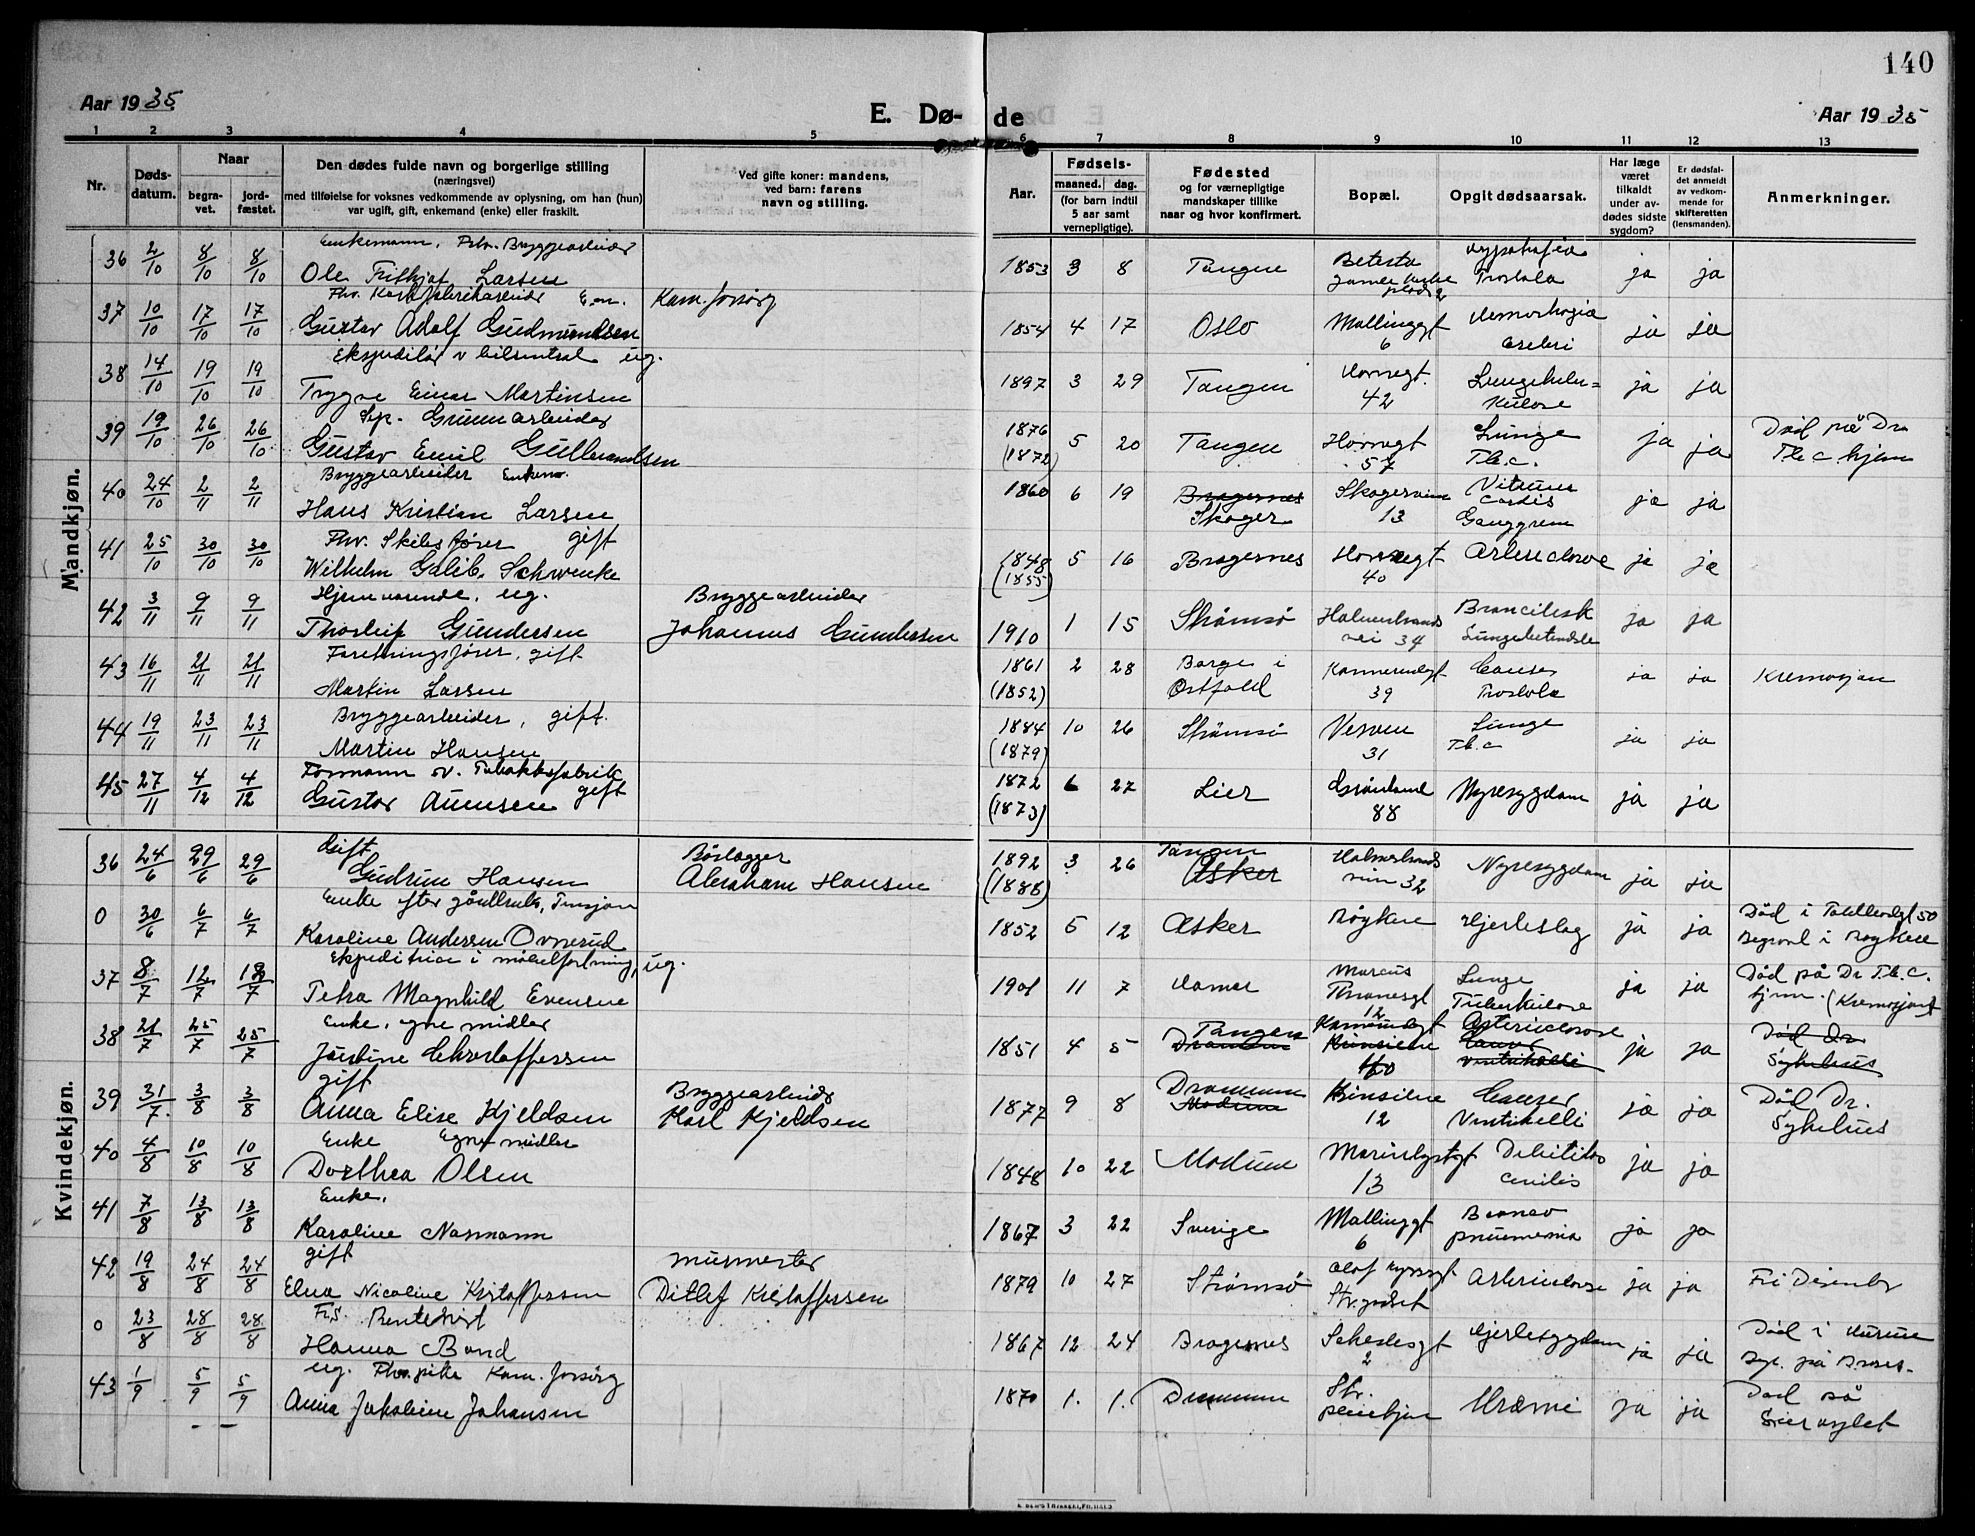 140
Aar 1935
E. Dø- de
Aar 1935
1 2 3 4 5 6 7 8 9 10 11 12 13
Nr.
Døds-
datum.
Naar
begra-
vet.
jord-
fæstet.
Den dødes fulde navn og borgerlige stilling
(næringsvei)
med tilføielse for voksnes vedkommende av oplysning, om han (hun)
var ugift, gift, enkemand (enke) eller fraskilt.
Ved gifte koner: mandens,
ved barn: farens
navn og stilling.
Aar.
Fødsels-
maaned. dag.
(for barn indtil
5 aar samt
vernepligtige).
Fødested
og for værnepligtige
mandskaper tillike
naar og hvor konfirmert.
Bopæl.
Opgit dødsaarsak.
Har læge
været
tilkaldt
under av-
dødes sidste
sygdom?
Er dødsfal-
det anmeldt
av vedkom-
mende for
skifteretten
(lensmanden).
Anmerkninger.
Mandkjøn.
Enkemann. Bryggearbeider
36 2/10 8/10 8/10 Ole Frithjof Larsen 1853 3 8 Tangen Prostata ja ja
Fhv. E.m. Kom. forsørg
37 10/10 17/10 17/10 Gustav Adolf Gudmundsen 1854 4 17 Oslo Mallinggt 6 cerebri ja ja
Ekspeditør v bilsentral ug.
38 14/10 19/10 19/10 Trygve Einar Martinsen 1897 3 29 Tangen Havnegt. 42 Lungetuber=
kulose ja ja
Sep. Grunnarbeider
39 19/10 26/10 26/10 Gustav Emil Gulbrandsen 1876 (1872) 5 20 Tangen Havnegt 57 Lunge
Tb.c. ja ja Død på Dr.
Tb.c. hjem
Bryggearbeider Enkem.
40 24/10 2/11 2/11 Hans Kristian Larsen 1860 6 19 Bragernes
Skoger 13 Vitium
cordis
Ganggren ja ja
Fhv. Skibsfører gift
41 25/10 30/10 30/10 Wilhelm Gotlib. Schwencke 1848 (1855) 5 16 Bragernes Havnegt 40 ja ja
Hjemmeværende, ug. Bryggearbeider
42 3/11 9/11 9/11 Thorleif Gundersen Johannes Gundersen 1910 1 15 Strømsø Holmestrands
vei 34 ja ja
Forretningsfører, gift
43 16/11 21/11 21/11 Martin Larsen 1861 (1852) 2 28 Borge i
Østfold 39 Cancer
Prostata ja ja Kremasjon
Bryggearbeider, gift.
44 19/11 23/11 23/11 Martin Hansen 1884 (1879) 10 26 Strømsø Verven 31 Lunge
Tb.c ja ja
Formann v. Tobakksfabrik gift
45 27/11 4/12 4/12 Gustav Amensen 1872 (1873) 6 27 Lier Grønland 88 Nyresygdom ja ja
Kvindekjøn.
Gift Børslegger
36 24/6 29/6 29/6 Gudrun Hansen Abraham Hansen 1892 (1888) 3 26 Tangen
Asker Holmestrands
veien 32 Nyresygdom ja ja
Enke efter
0 30/6 6/7 6/7 Karoline Andersen Ovnerud 1852 5 12 Asker Røyken Hjerteslag ja ja Død i 50
Begravet i Røyken
Ekspeditrice i møbelforretning, ug.
37 8/7 12/7 12/7 Petra Magnhild Evensen 1901 11 7 Hamar Marcus
Thranesgt
12 Lunge
Tuberkulose ja ja Død på Dr Tb.C.
hjem. (Kremasjon)
Enke, egne midler
38 21/7 25/7 25/7 Justine Christoffersen 1851 4 5 Tangen
Drammen Arteriosclerose
Cancer
ventrikelli ja ja Død Dr
Sykehus
gift Bryggearbeider
39 31/7 3/8 3/8 Anna Elise Kjeldsen Karl Kjeldsen 1877 9 8 Drammen
Modum 12 Cancer
Ventrikelli ja ja Død Dr.
Sykehus
Enke Egne midler
40 4/8 10/8 10/8 Dorthea Olsen 1848 10 22 Modum 13 ja ja
Enke.
41 7/8 13/8 13/8 Karoline Nasmann 1867 3 22 Sverige Mallinggt 6 ja ja
gift murmester
42 19/8 24/8 24/8 Elna Nicoline Kristoffersen Ditlef Kristoffersen 1879 10 27 Strømsø ja ja
Frk.
0 23/8 28/8 28/8 Hanna Bond 1867 12 24 Bragernes 2 Hjertesygdom ja ja Død i Hurum
ug. Fhv. pike Kom. forsørg
43 1/9 5/9 5/9 Anna Jakobine Johansen 1870 1. 1. Drammen Str.
pleiehjem Uræmi ja ja Død på
Lier asylet